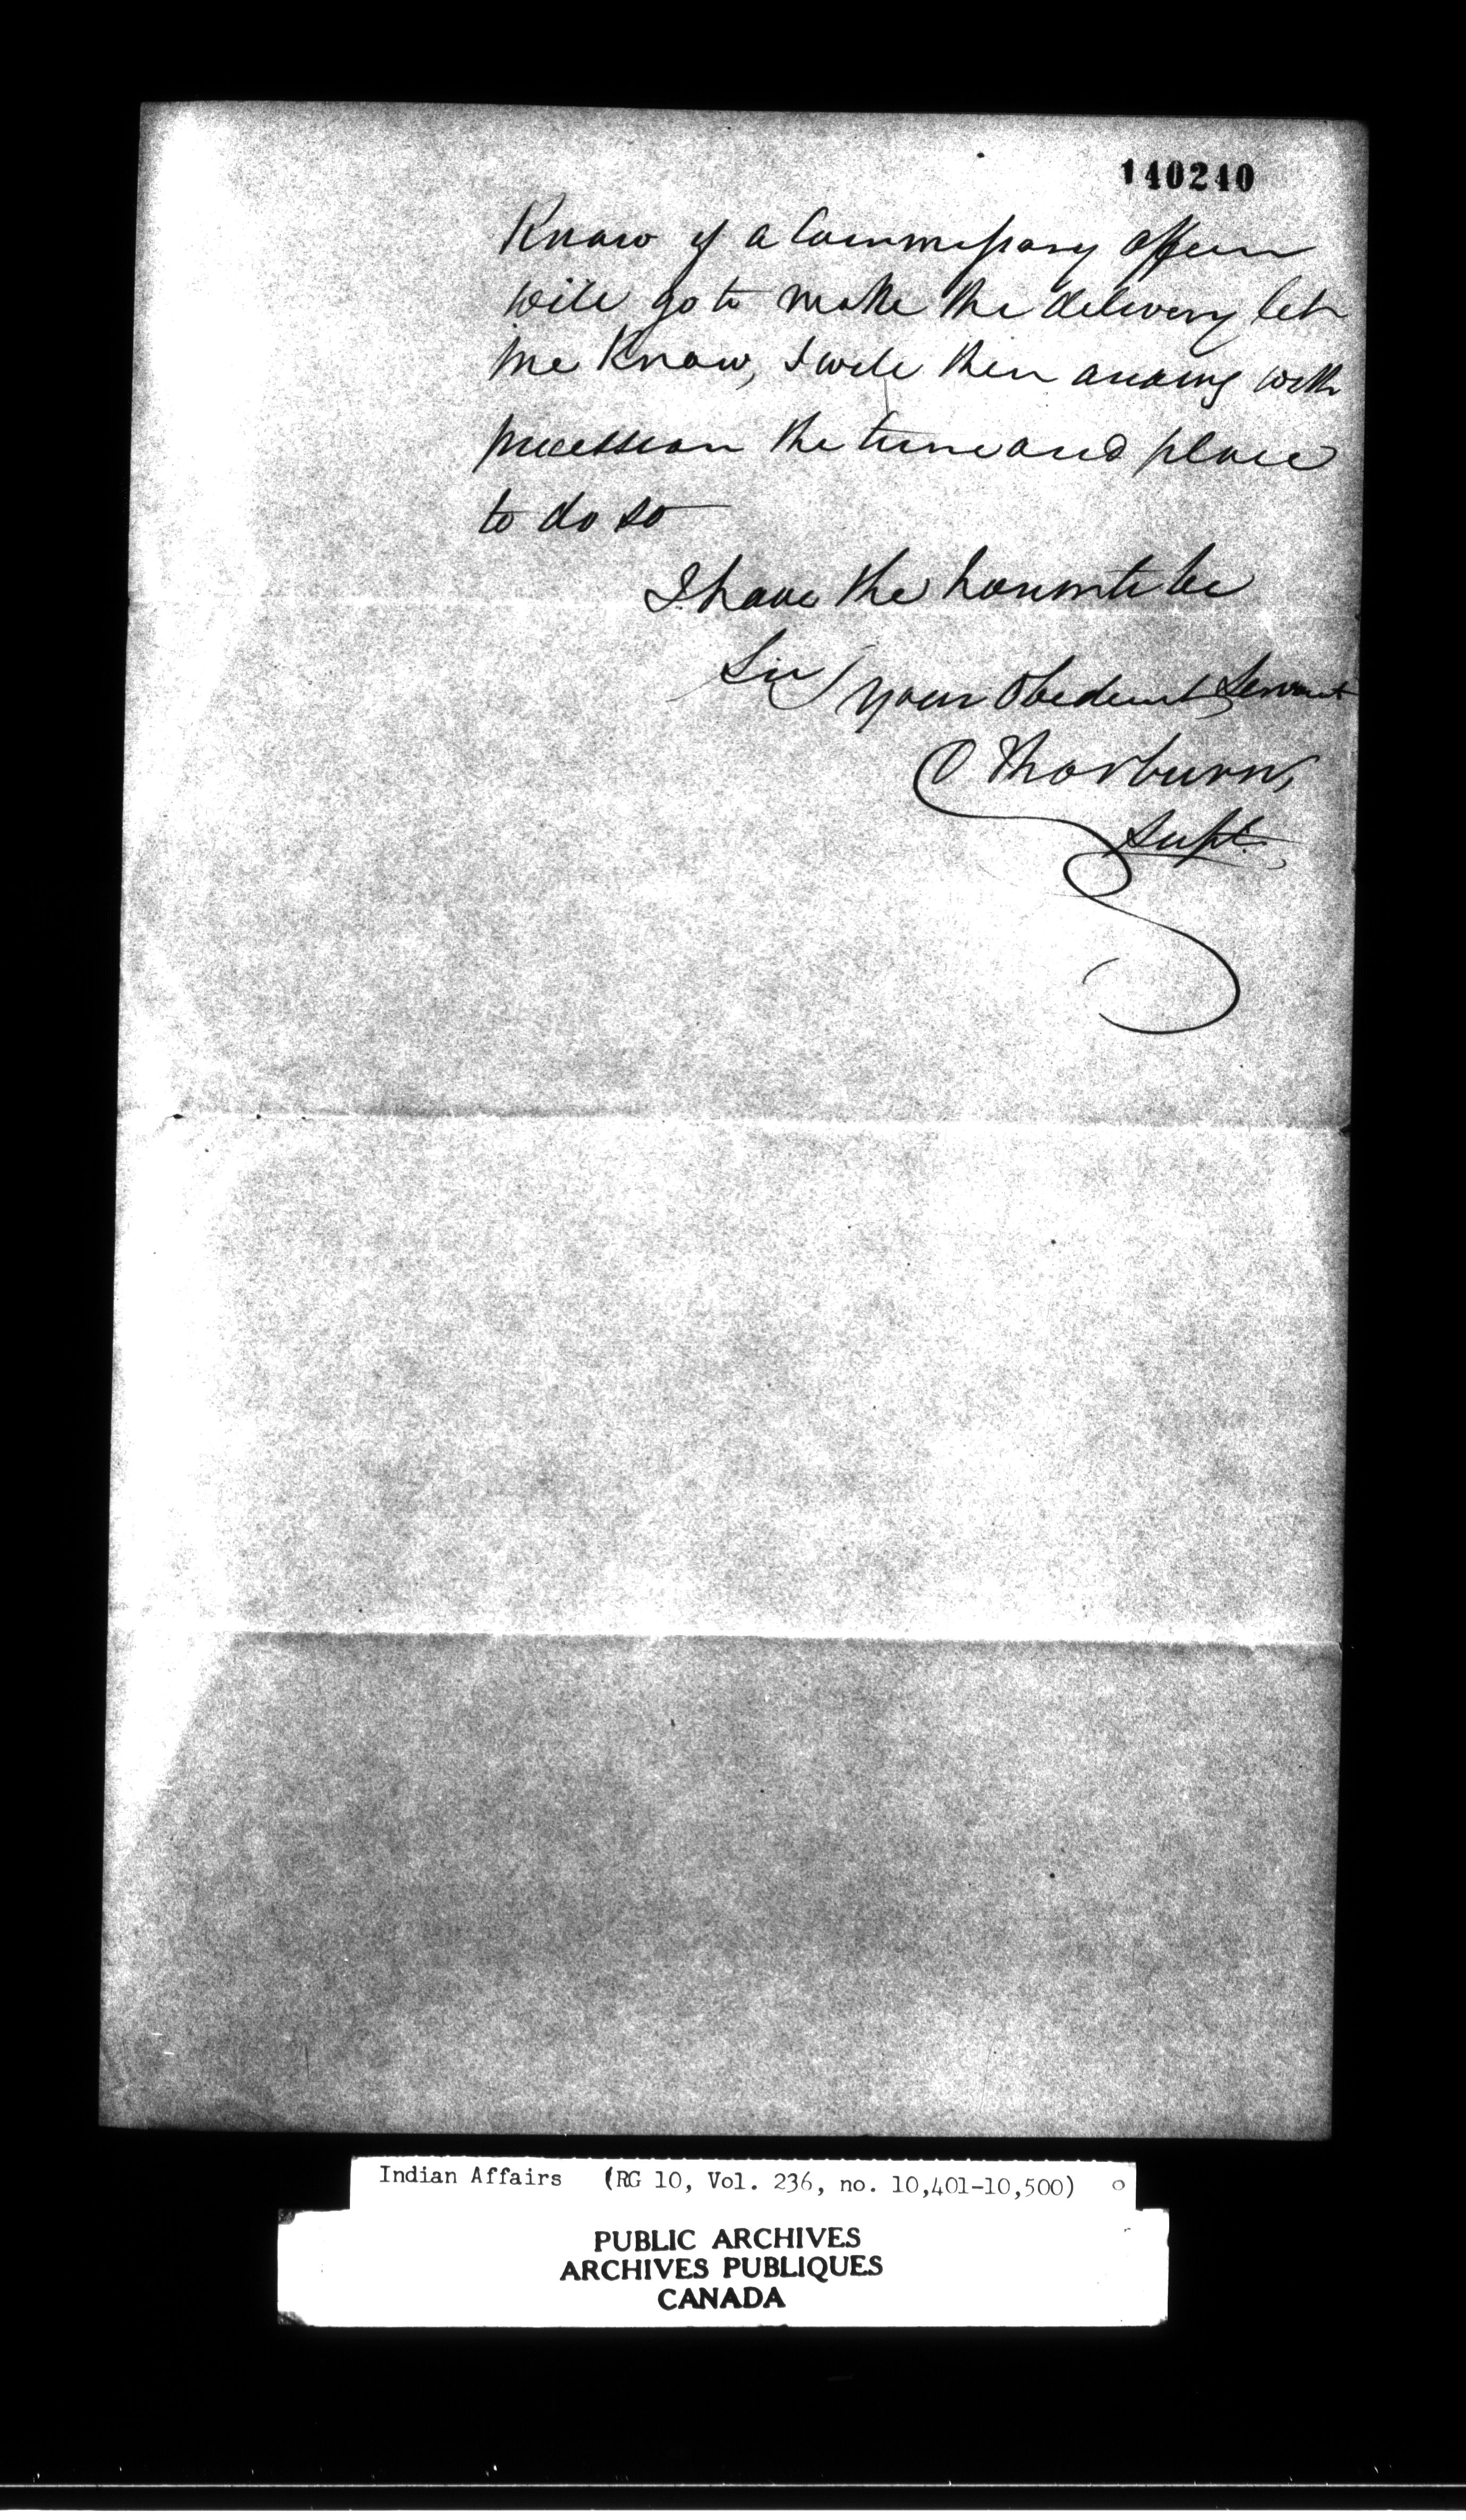 140240
Know if a Commissary officer
will go to make the delivery let
me Know, I will then arrang with
precession the time and place
to do so
I have the honour to be
Sir
your Obedient Servant
D Thorburn,
Supt.
Indian Affairs (RG 10, Vol. 236, no. 10,401-10,500)
PUBLIC ARCHIVES
ARCHIVES PUBLIQUES
CANADA